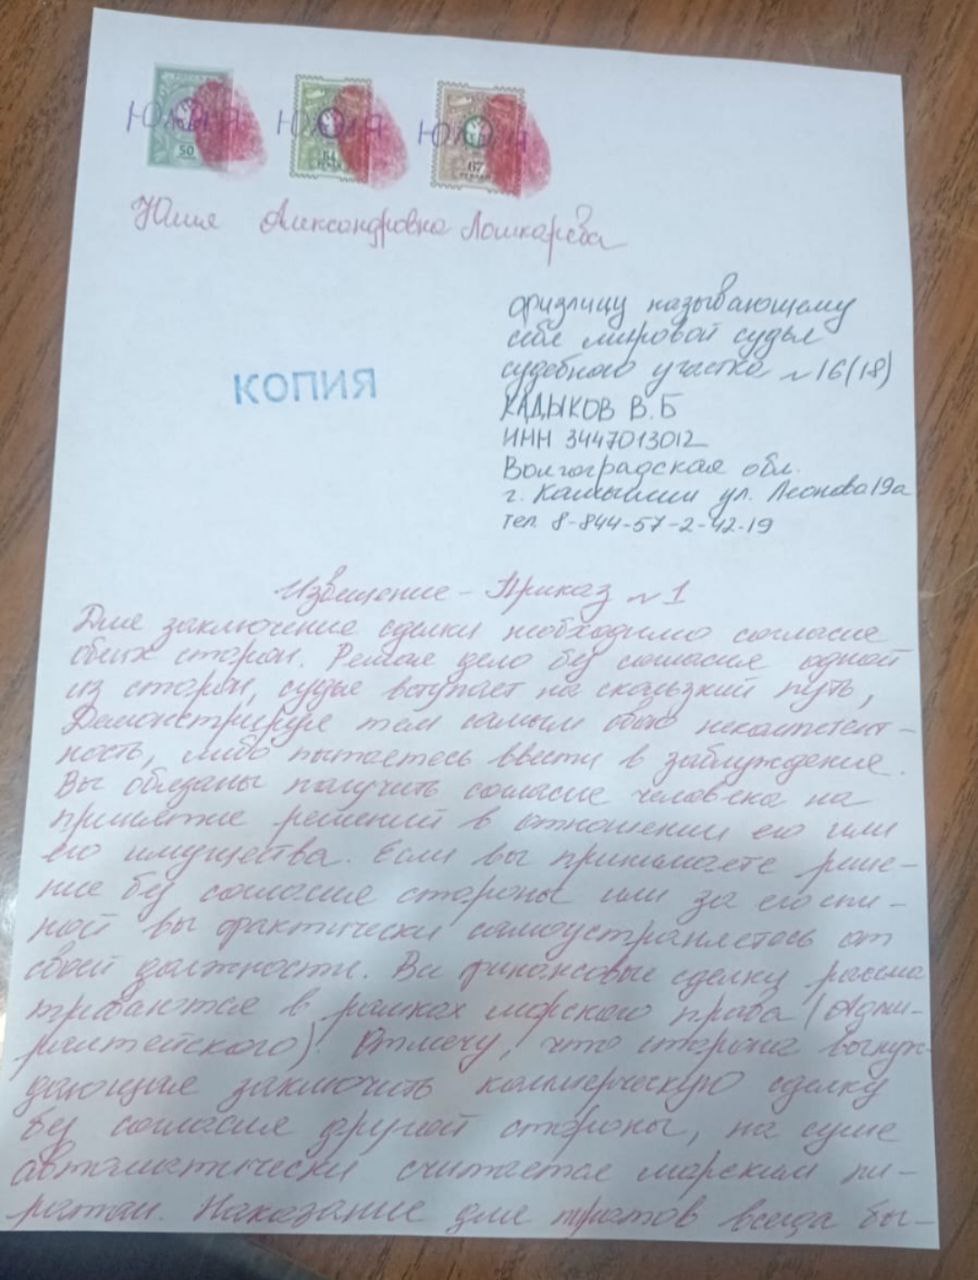 ЮЛИЯ ЮЛИЯ ЮЛИЯ
50 54 67
Юлия Александровна Лошкарева
физлицу называющему
себя мировой судья
судебного участка №16(18)
КОПИЯ
ХАДЫКОВ В.Б
ИНН 3447013012
Волгоградская обл.
г. Камышин ул. Леонова 19а
тел. 8-844-57-2-42-19
Извещение - Приказ №1
Для заключение сделки необходимо согласие
обеих сторон. Решая дело без согласия одной
из сторон, судья вступает на скользкий путь,
Демонстрируя тем самым свою некомпетент-
ность, либо пытаетесь ввести в заблуждение.
Вы обязаны получить согласие человека на
принятие решений в отношении его или
его имущества. Если вы принимаете реше-
ние без согласия стороны или за его спи-
ной вы фактически самоустраняетесь от
своей должности. Все финансовые сделки рассма
триваются в рамках морского права (Адми-
ралтейского). Отмечу, что сторона вынуж-
дающая заключить коммерческую сделку
без согласия другой стороны, на суше
автоматически считается морским пи-
ратом. Наказание для пиратов всегда бы-